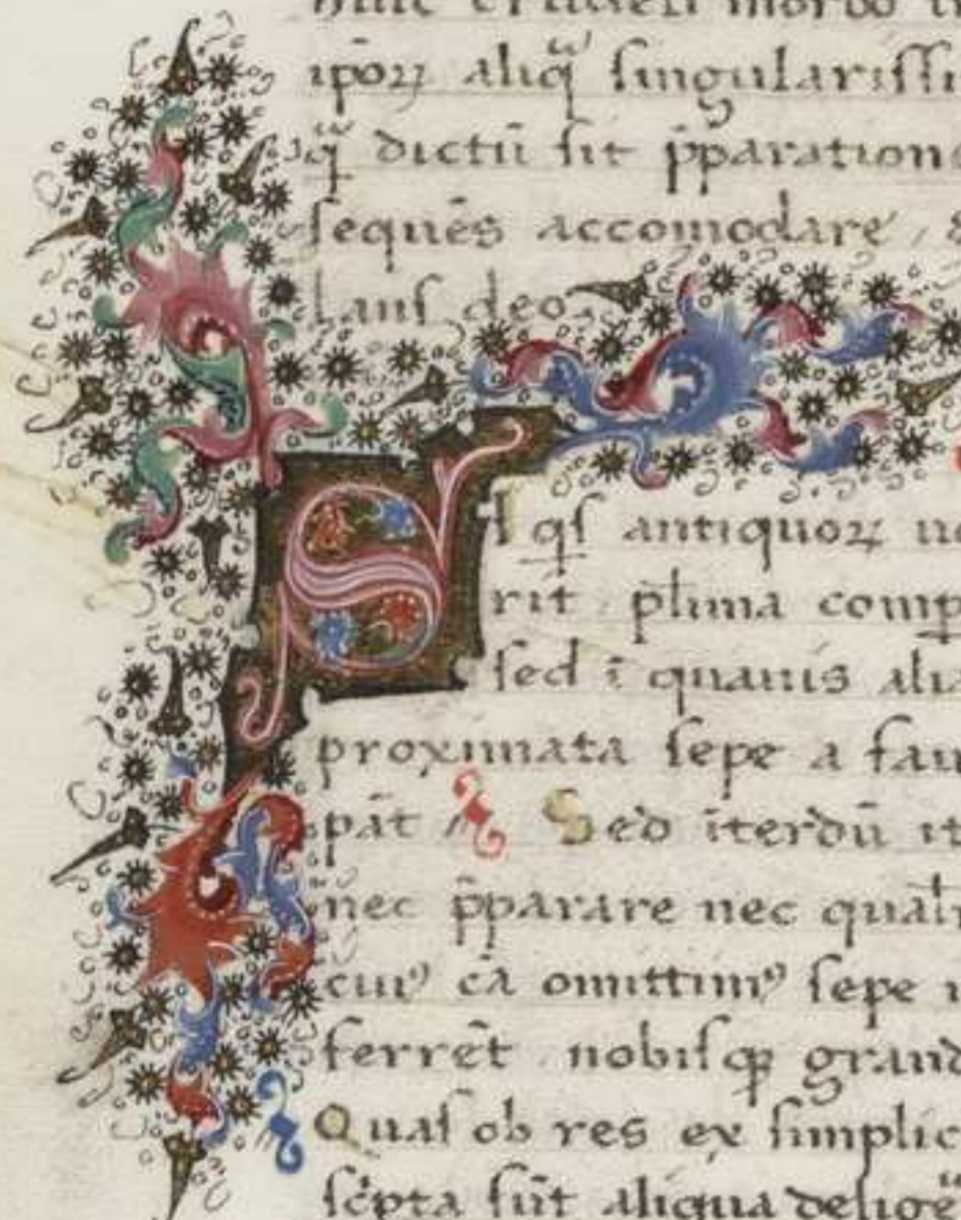 huic crudeli morbo
ipoꝝ aliq̃ singularissi
q̃ dictũ sit p̃paration
sequẽs accomodare,
laus deo
SI qs antiquoꝝ
rit plima comp
sed ĩ quauis ali
proximata sepe a fau
pãt Sed ĩterdũ it
nec p̃parare nec qual
cuiꝰ cã omittimꝰ sepe
ferrẽt nobisqꝫ grand
Quas ob res ex simplic
sc̃pta sũt aliqua